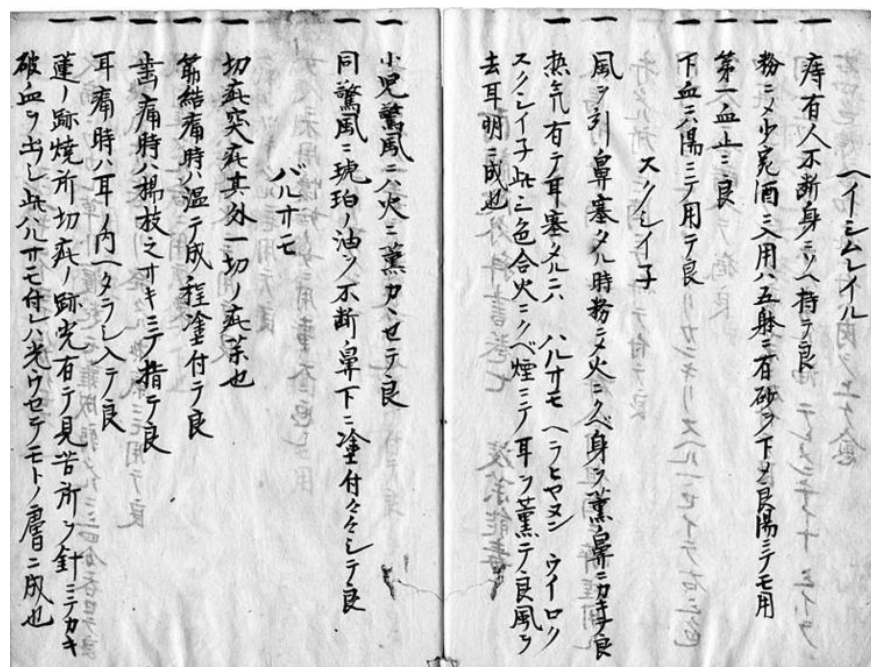 ヘイシムレイル
一 痔有人不断身ニソヘ持テ良
一 粉ニメ少宛酒ニ入用ハ五躰ニ有砂ヲ下メ良湯ミテモ用
一 第一血止ニ良
一 下血ニ湯ミテ用テ良
スクシイ子
一 風ヲ引鼻塞タル時粉ニメ火ニクベ身ヲ薫鼻ニカキ良
一 熱気有テ耳塞タルニハ ハルサモ ヘラヒヤヌン ウイロク
スクシイ子此三色合火ニクベ煙ミテ耳ヲ薫テ良風ヲ
去耳明ニ成也
一 小児驚風ニハ火ニ薫カヽセテ良
一 同驚風ニ琥珀ノ油ヲ不断鼻下ニ塗付々々シテ良
バルサモ
一 切疵突疵其外一切ノ疵薬也
一 筋結痛時ハ温テ成程塗付テ良
一 歯痛時ハ楊枝之サキミテ指テ良
一 耳痛時ハ耳ノ内ヘタラシ入テ良
一 蓮ノ跡焼所切疵ノ跡光有テ見苦所ヲ針ミテカキ
破血ヲ出シ此ハルサモ付レハ光ウセテモトノ膚ニ成也